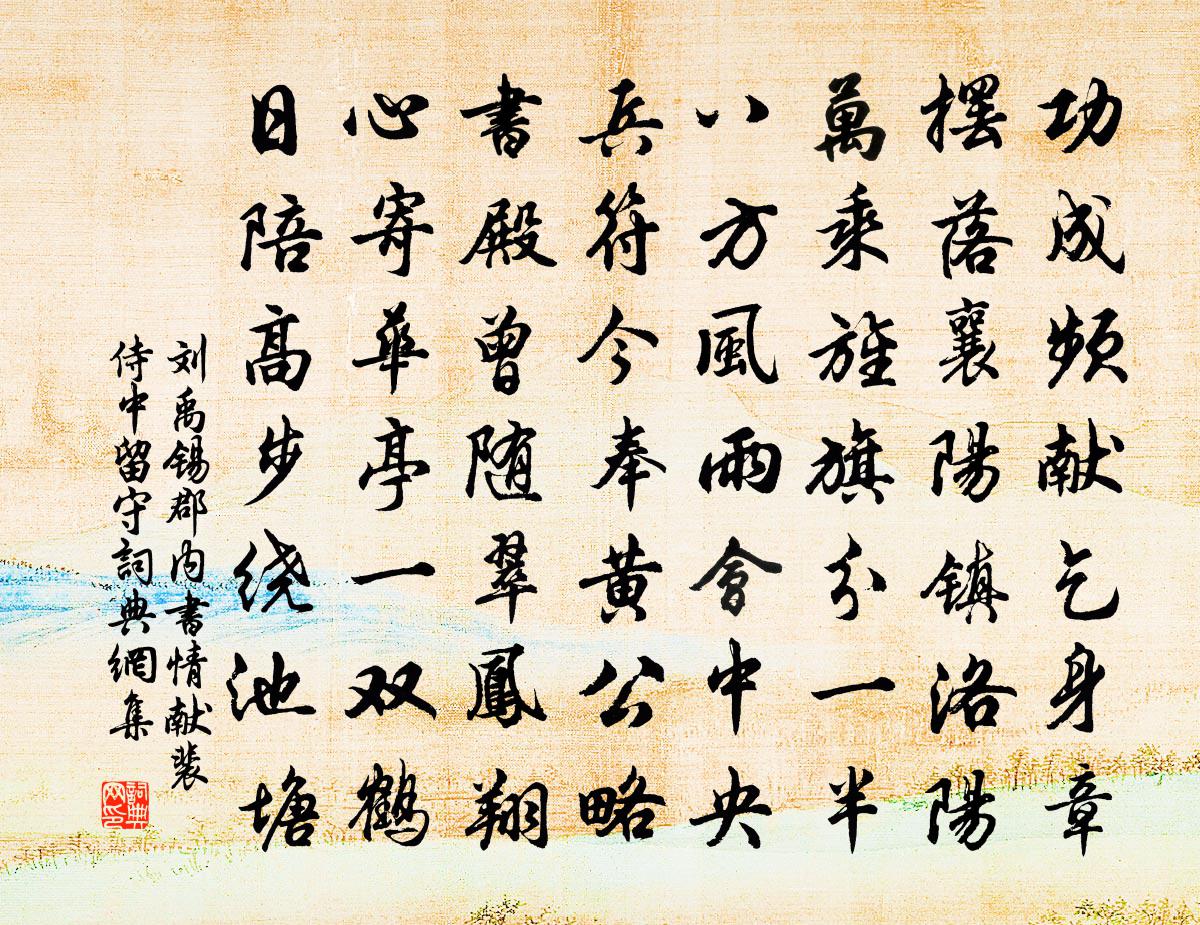 功成频献乞身章
擺落襄陽镇洛陽
萬乘旌旗分一半
八方風雨會中央
兵符今奉黄公略
書殿曾随翠鳳翔
心寄華亭一双鹤
日陪高步绕池塘
刘禹锡郡内書情献裴
侍中留守詞典網集
詞典
网印